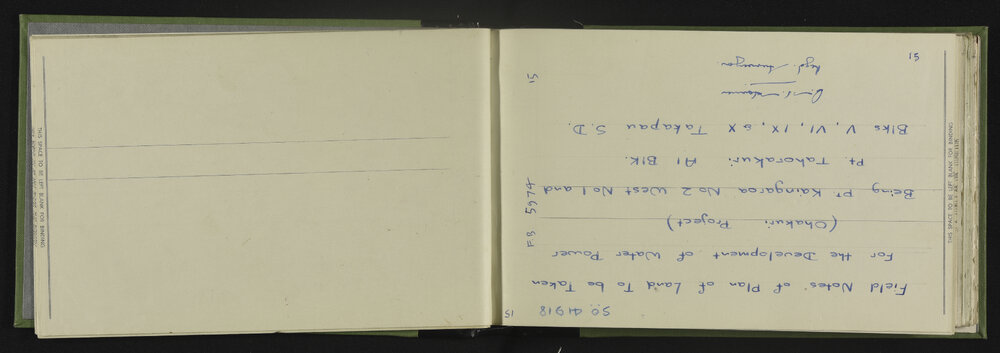 15
S.O. 41918
Field Notes of Plan of Land To be Taken
For the Development of Water Power
(Ohakuri Project)
Being Pt Kaingaroa No 2 West No 1 and
Pt. Tahorakuri A1 Blk.
Blks V, VI, IX, & X Takapau S.D.
Regd. Surveyor.
15
15
FB 5974
THIS SPACE TO BE LEFT BLANK FOR BINDING
THIS SPACE TO BE LEFT BLANK FOR BINDING